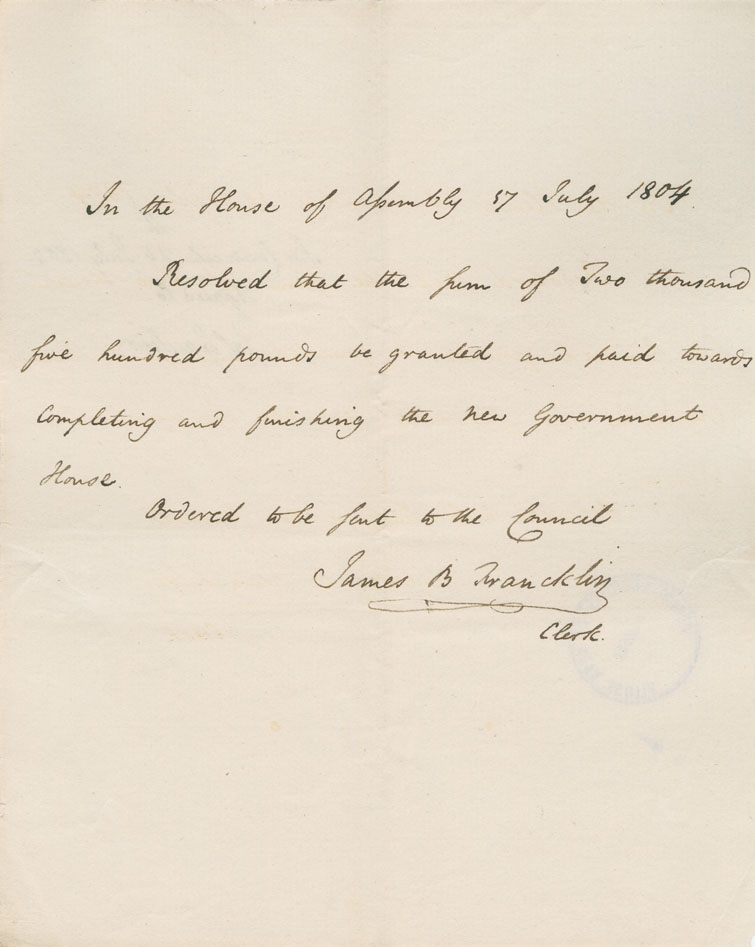 In the House of Assembly 17 July 1804
Resolved that the sum of Two thousand
five hundred pounds be granted and paid towards
Completing and finishing the new Government
House.
Ordered to be sent to the Council
James B Francklin
Clerk.